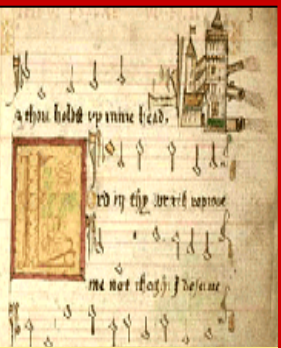 & thou holdst vp mine head,
rd in thy wrath reproue
me not thogh I deserue